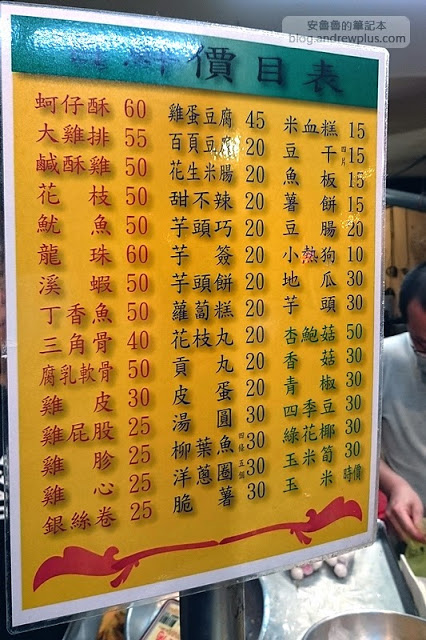 安魯魯的筆記本
blog.andrewplus.com
價目表
蚵仔酥 60
大雞排 55
鹹酥雞 50
花枝 50
魷魚 50
龍珠 60
溪蝦 50
丁香魚 50
三角骨 40
腐乳軟骨 50
雞皮 30
雞屁股 25
雞胗 25
雞心 25
銀絲卷 25
雞蛋豆腐 45
百頁豆腐 20
花生米腸 20
甜不辣 20
芋頭巧 20
芋簽 20
芋頭餅 20
蘿蔔糕 20
花枝丸 20
貢丸 20
皮蛋 20
湯圓 30
柳葉魚 四條 30
洋蔥圈 五個 30
脆薯 30
米血糕 15
豆干 四片 15
魚板 15
薯餅 15
豆腸 20
小熱狗 10
地瓜 30
芋頭 30
杏鮑菇 50
香菇 30
青椒 30
四季豆 30
綠花椰 30
玉米筍 30
玉米 時價